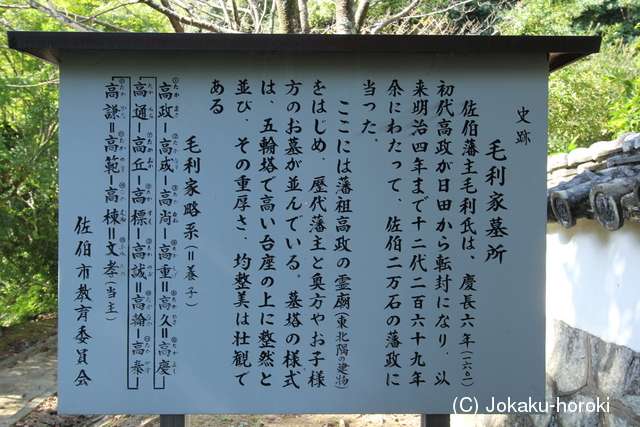 史跡
毛利家墓所
佐伯藩主毛利氏は、慶長六年(一六〇一)
初代高政が日田から転封になり、以
来明治四年まで十二代二百六十九年
余にわたって、佐伯二万石の藩政に
当った。
ここには藩祖高政の霊廟(東北隅の建物)
をはじめ、歴代藩主と奥方やお子様
方のお墓が並んでいる。墓塔の様式
は、五輪塔で高い台座の上に整然と
並び、その重厚さ、均整美は壮観で
ある
毛利家略系(=養子)
①高政―②高成―③高尚―④高重=⑤高久=⑥高慶
高通―高丘―高標―高誠=高翰―高泰
高謙=高範―高棟=文孝(当主)
佐伯市教育委員会
(C) Jokaku-horoki